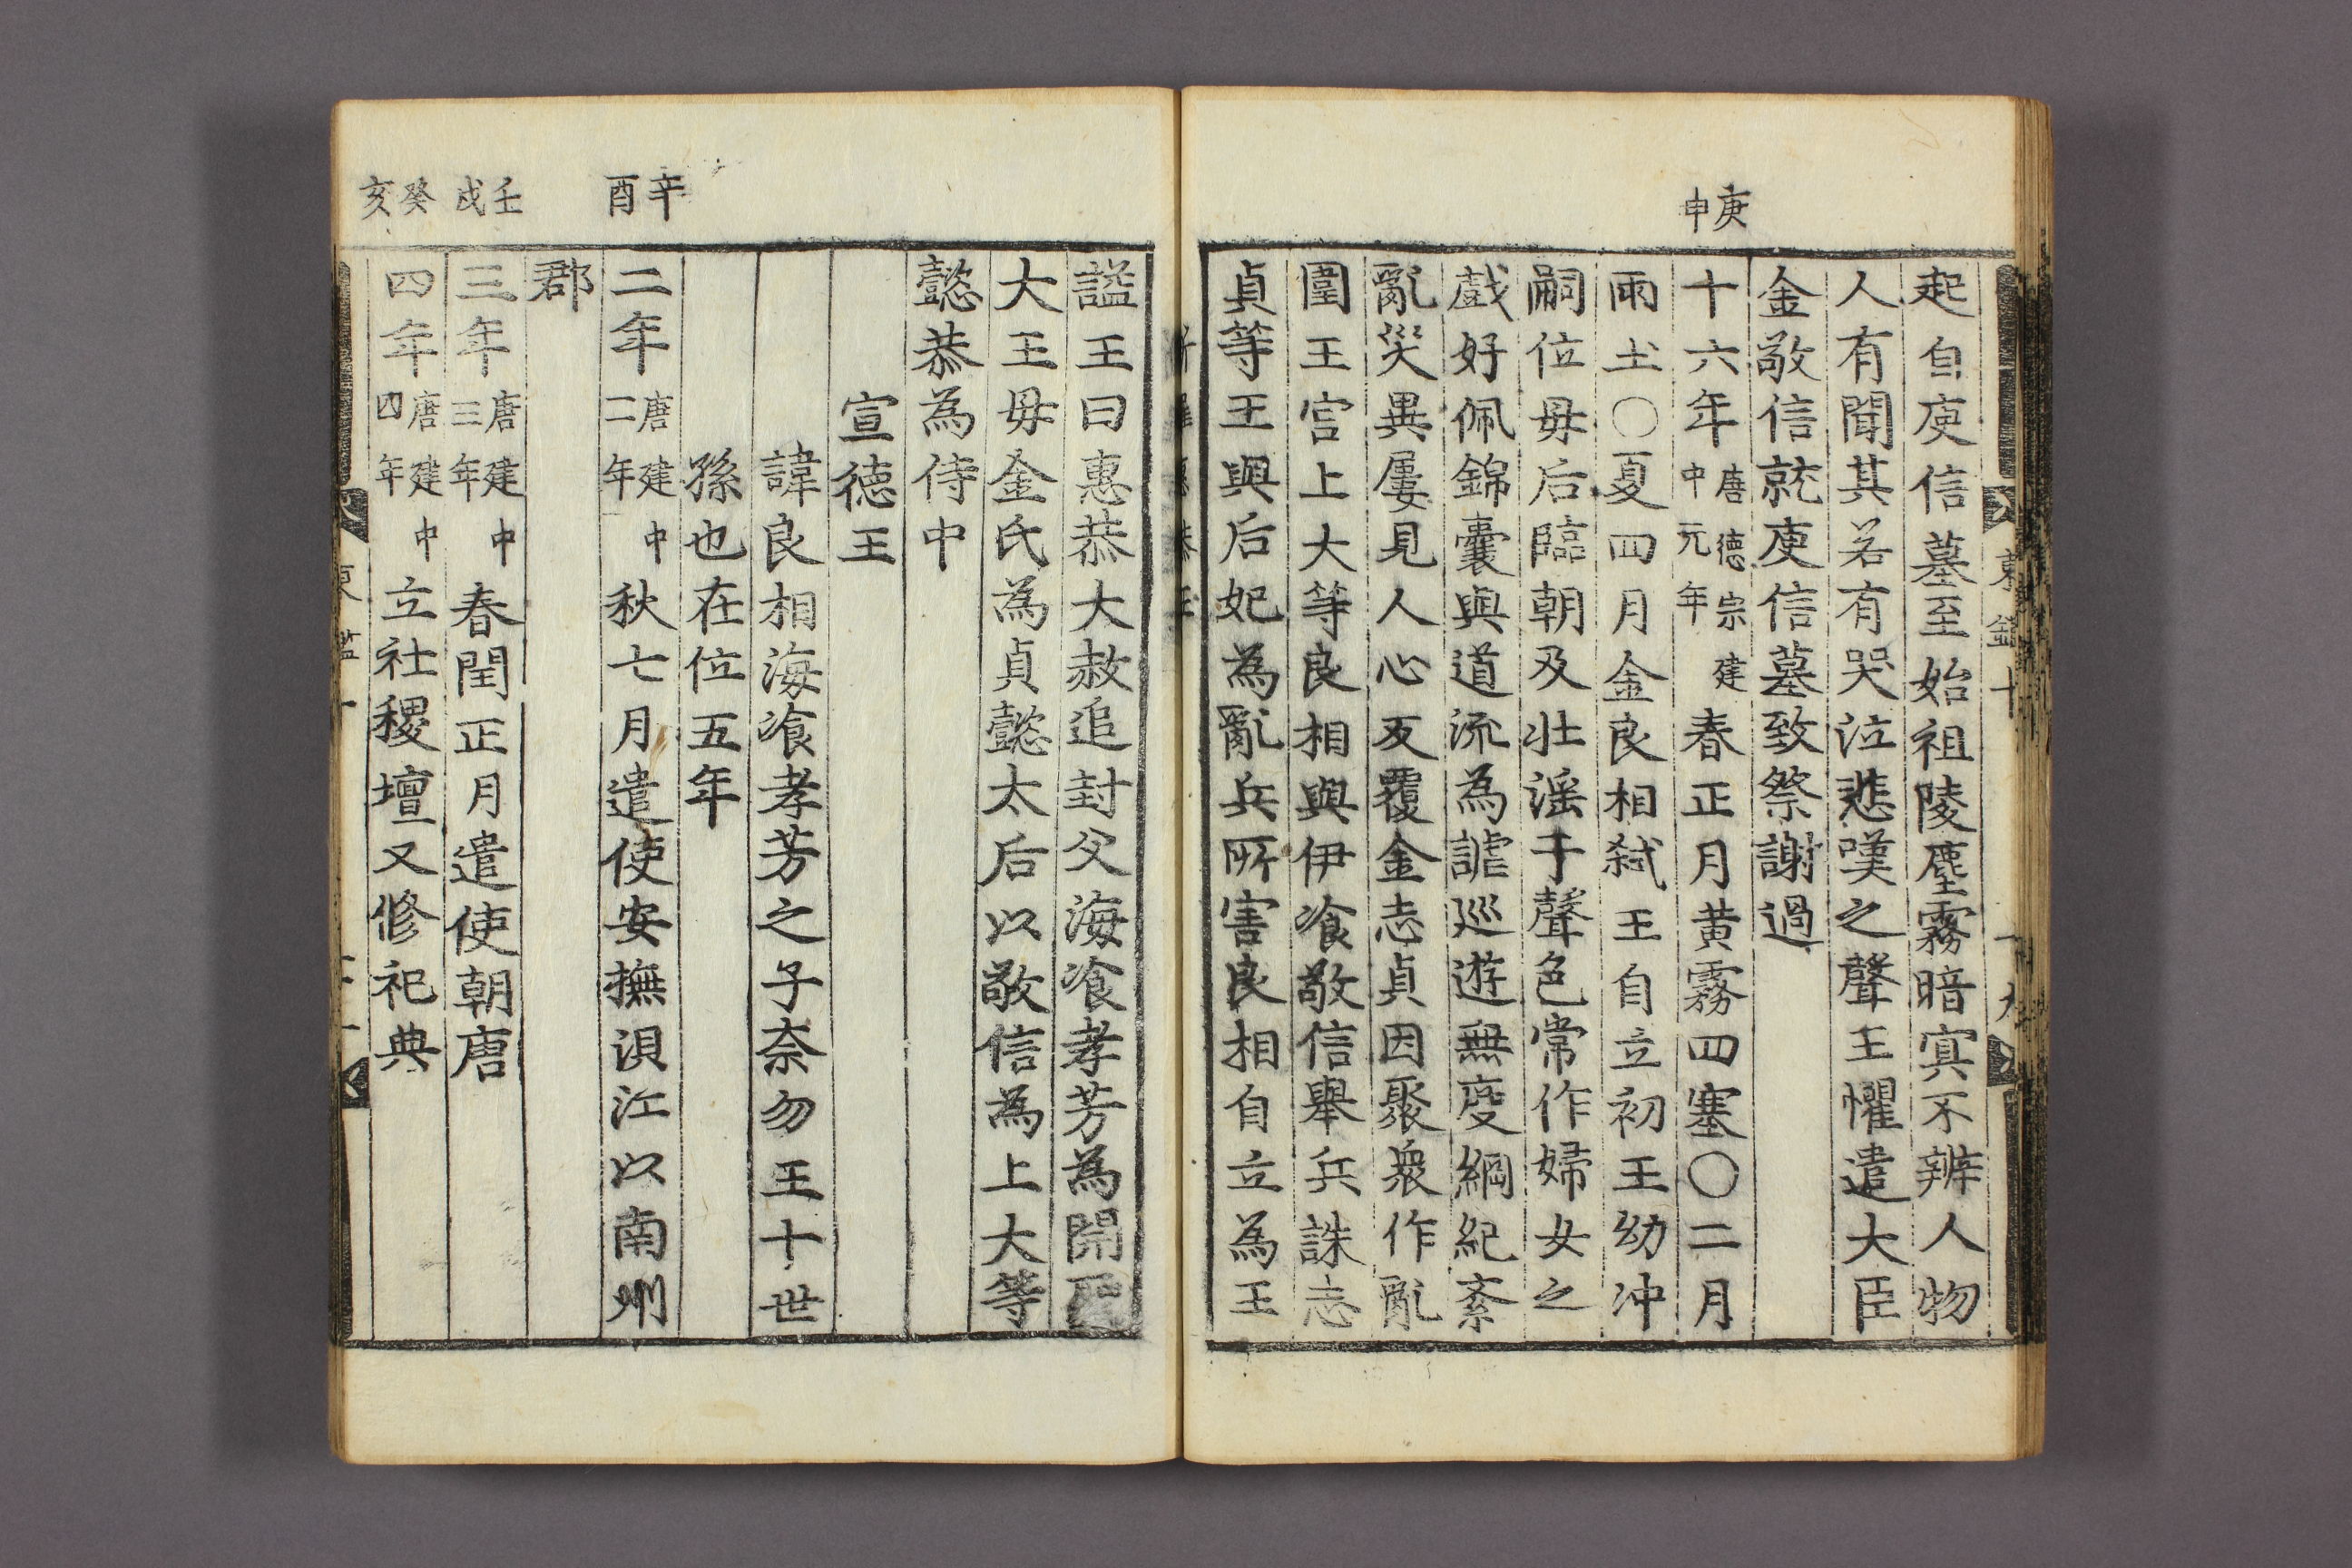 庚申
起自庾信墓至始祖陵塵霧暗㝠不辨人物
人有聞其若有哭泣悲嘆之聲王懼遣大臣
金敬信就庾信墓致祭謝過
十六年唐德宗建中元年春正月黄霧四塞〇二月
雨土〇夏四月金良相弑王自立初王幼冲
嗣位毋后臨朝及壯滛于聲色常作婦女之
戲好佩錦囊與道流為謔巡遊無度綱紀紊
亂災異屢見人心反覆金志貞因聚衆作亂
圍王宫上大等良相與伊飡敬信舉兵誅志
貞等王與后妃為亂兵所害良相自立為王
新羅惠恭王
謚王曰惠恭大赦追封父海飡孝芳為開聖
大王毋金氏為貞懿太后以敬信為上大等
懿恭為侍中
宣德王
諱良相海飡孝芳之子奈勿王十世
孫也在位五年
辛酉
二年唐建中二年秋七月遣使安撫浿江以南州
郡
壬戌
三年唐建中三年春閏正月遣使朝唐
癸亥
四年唐建中四年立社稷壇又修祀典